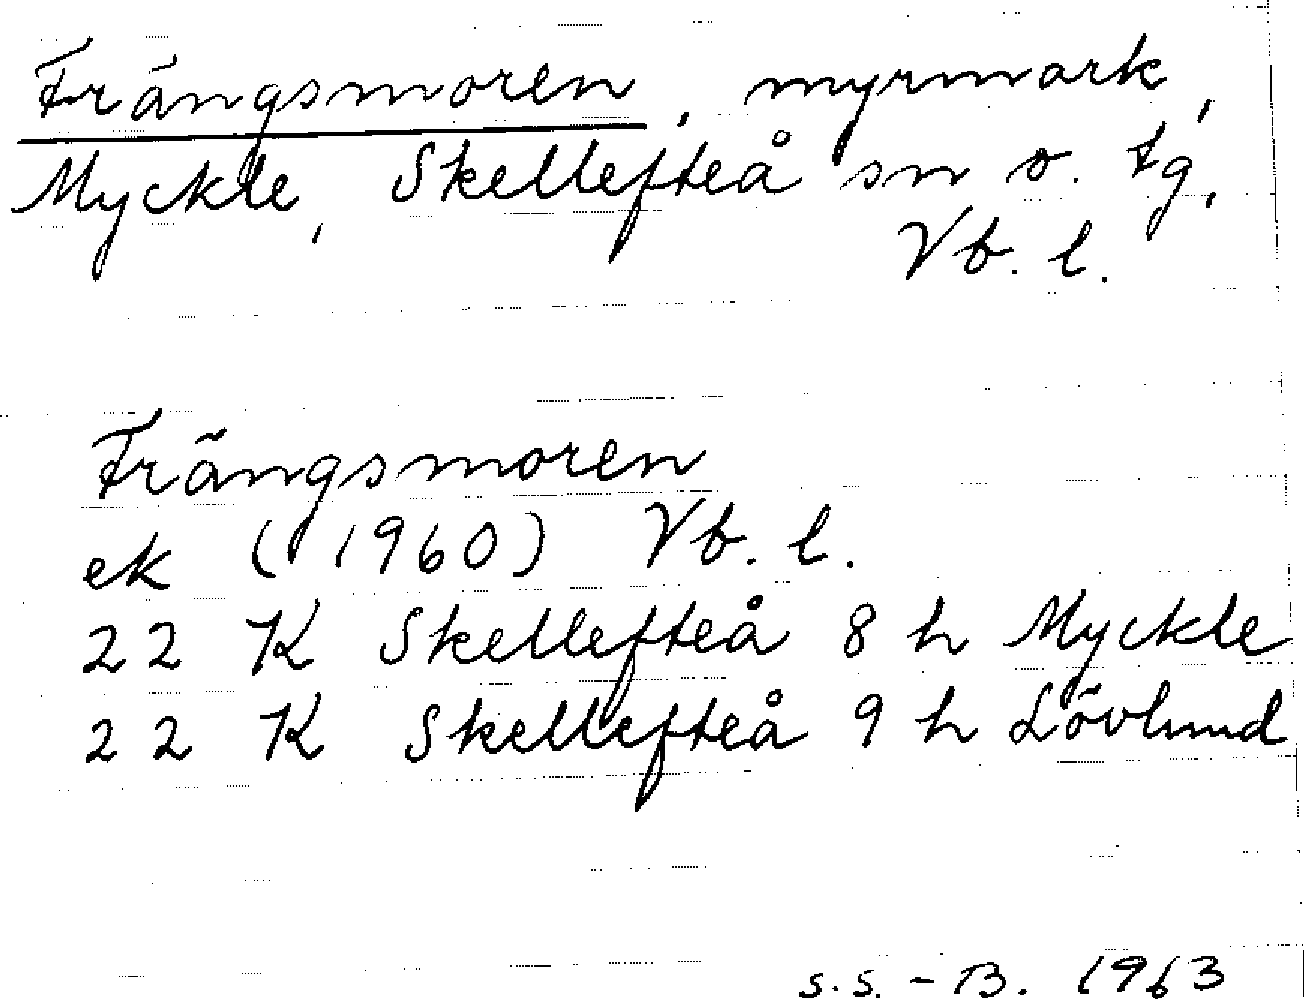 Frängsmoren, myrmark,
Myckle, Skellefteå sn o. tg,
Vb. l.
Frängsmoren
ek (1960) Vb. l.
22 K Skellefteå 8 h Myckle
22 K Skellefteå 9 h Lövlund
S.S. - B. 1963